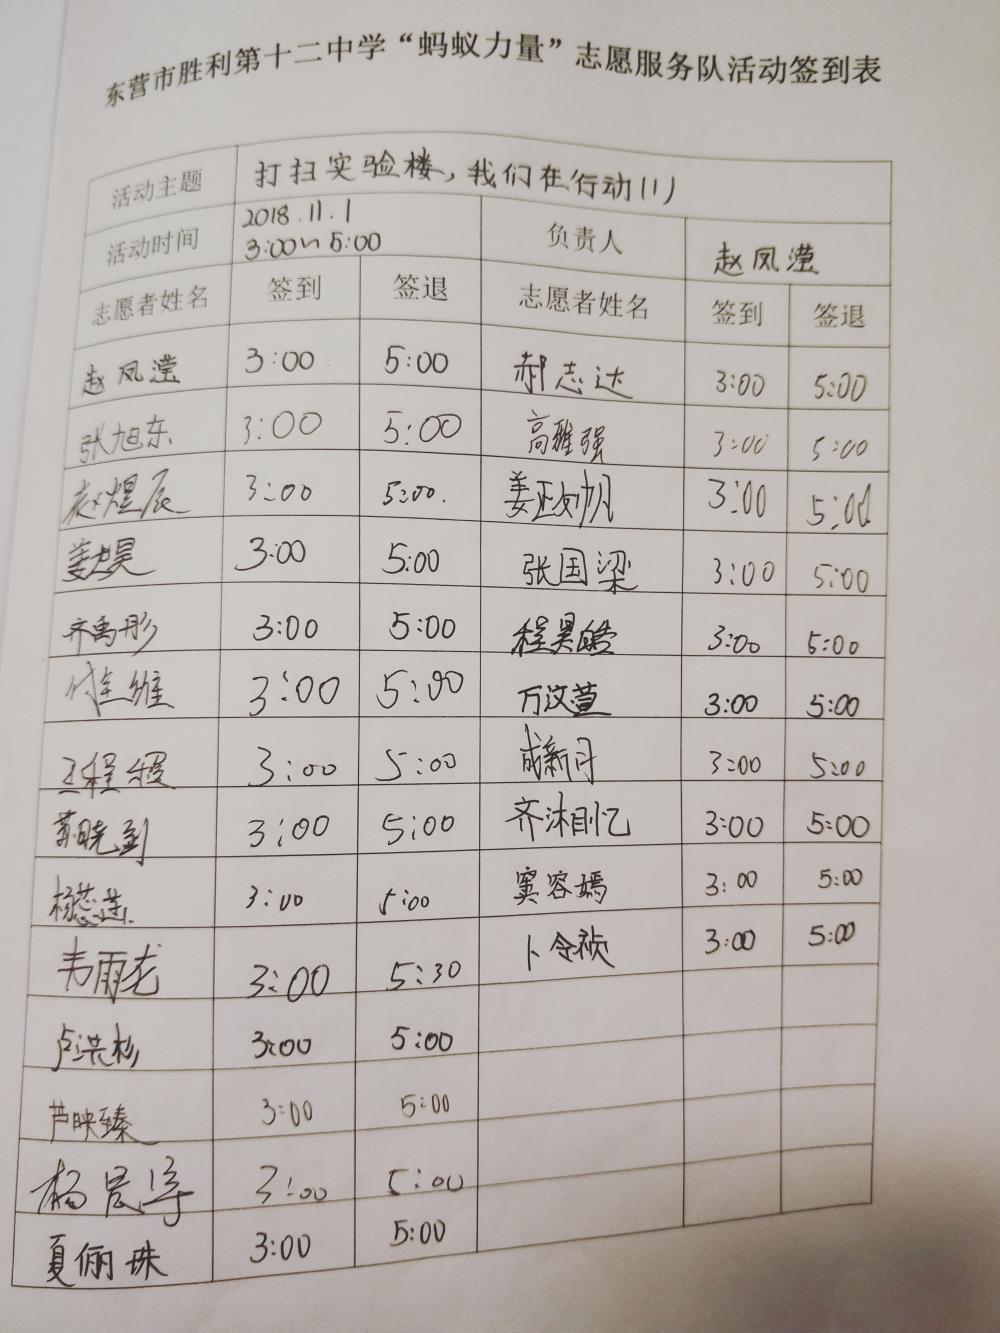 东营市胜利第十二中学“蚂蚁力量”志愿服务队活动签到表
活动主题 打扫实验楼，我们在行动(1)
活动时间 2018.11.1 3:00~5:00 负责人 赵凤滢
志愿者姓名 签到 签退 志愿者姓名 签到 签退
赵凤滢 3:00 5:00 郝志达 3:00 5:00
张旭东 3:00 5:00 高雅强 3:00 5:00
赵煜辰 3:00 5:00 3:00 5:00
3:00 5:00 张国梁 3:00 5:00
齐禹彤 3:00 5:00 程昊皓 3:00 5:00
付佳维 3:00 5:00 万汶萱 3:00 5:00
3:00 5:00 成新月 3:00 5:00
3:00 5:00 齐沐忆 3:00 5:00
3:00 5:00 窦容嫣 3:00 5:00
韦雨龙 3:00 5:30 卜令祯 3:00 5:00
卢洪杉 3:00 5:00
芦映臻 3:00 5:00
杨晨淳 3:00 5:00
夏俪珠 3:00 5:00